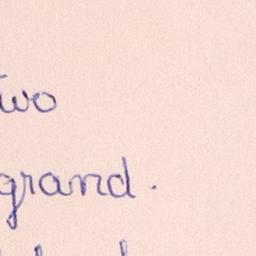 two
grand.